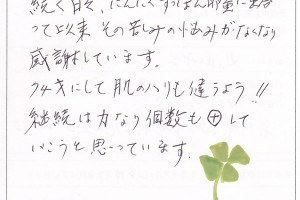 続く日々、にんにくすっぽん卵黄に出会
って以来 その苦しみの悩みがなくなり
感謝しています。
74才にして肌のハリも違うよう!!
継続は力なり個数も⊕して
いこうと思っています。